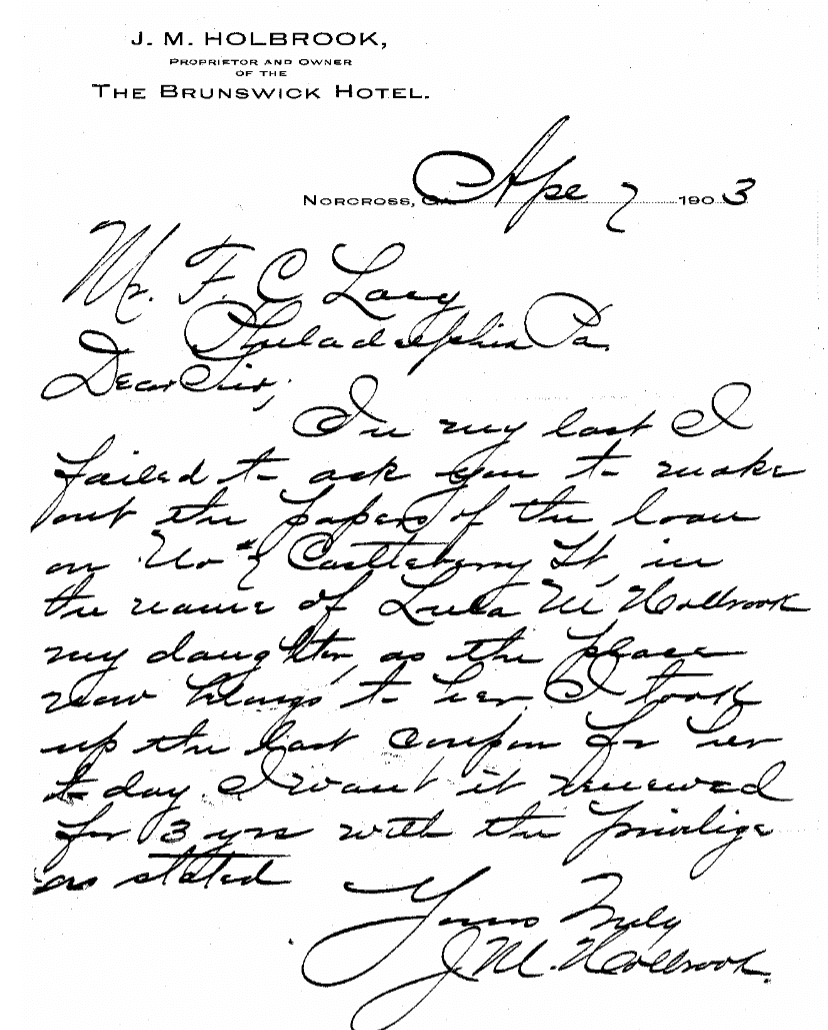 J. M. HOLBROOK,
PROPRIETOR AND OWNER
OF THE
THE BRUNSWICK HOTEL.
NORCROSS, GA. Apr 7 1903
Mr. F. C Lacy
Philadelphia Pa.
Dear Sir;
In my last I
failed to ask you to make
out the papers of the loan
on No Castleberry St, in
the name of Lula M Holbrook
my daughter, as the place
now belongs to her. I took
up the last coupon for her
to day. I want it renewed
for 3 yrs with the privilige
as stated
Yours Truly
J. M. Holbrook.